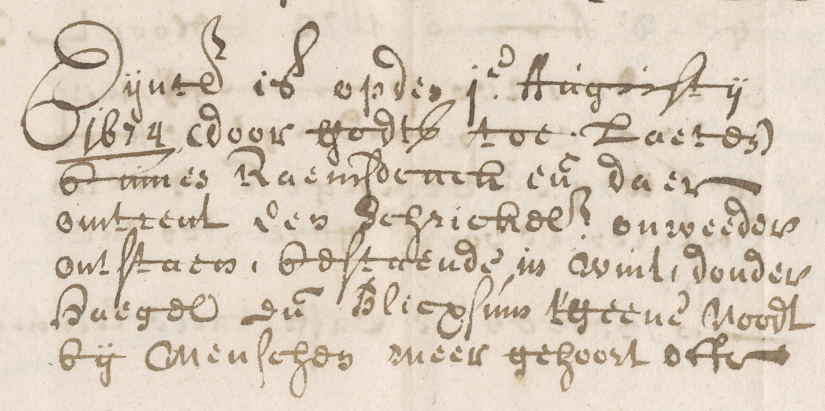 Dijnck is op den 1e Augusty
1674 door godts toe Laeten
binnen Raemsdonck en daer
omtrent een Schrickel. onweeder
ontstaen, bestaende in Wint, donder
Haegel en Blicxsim t'geene Noodt
by Menschen meer gehoort offte